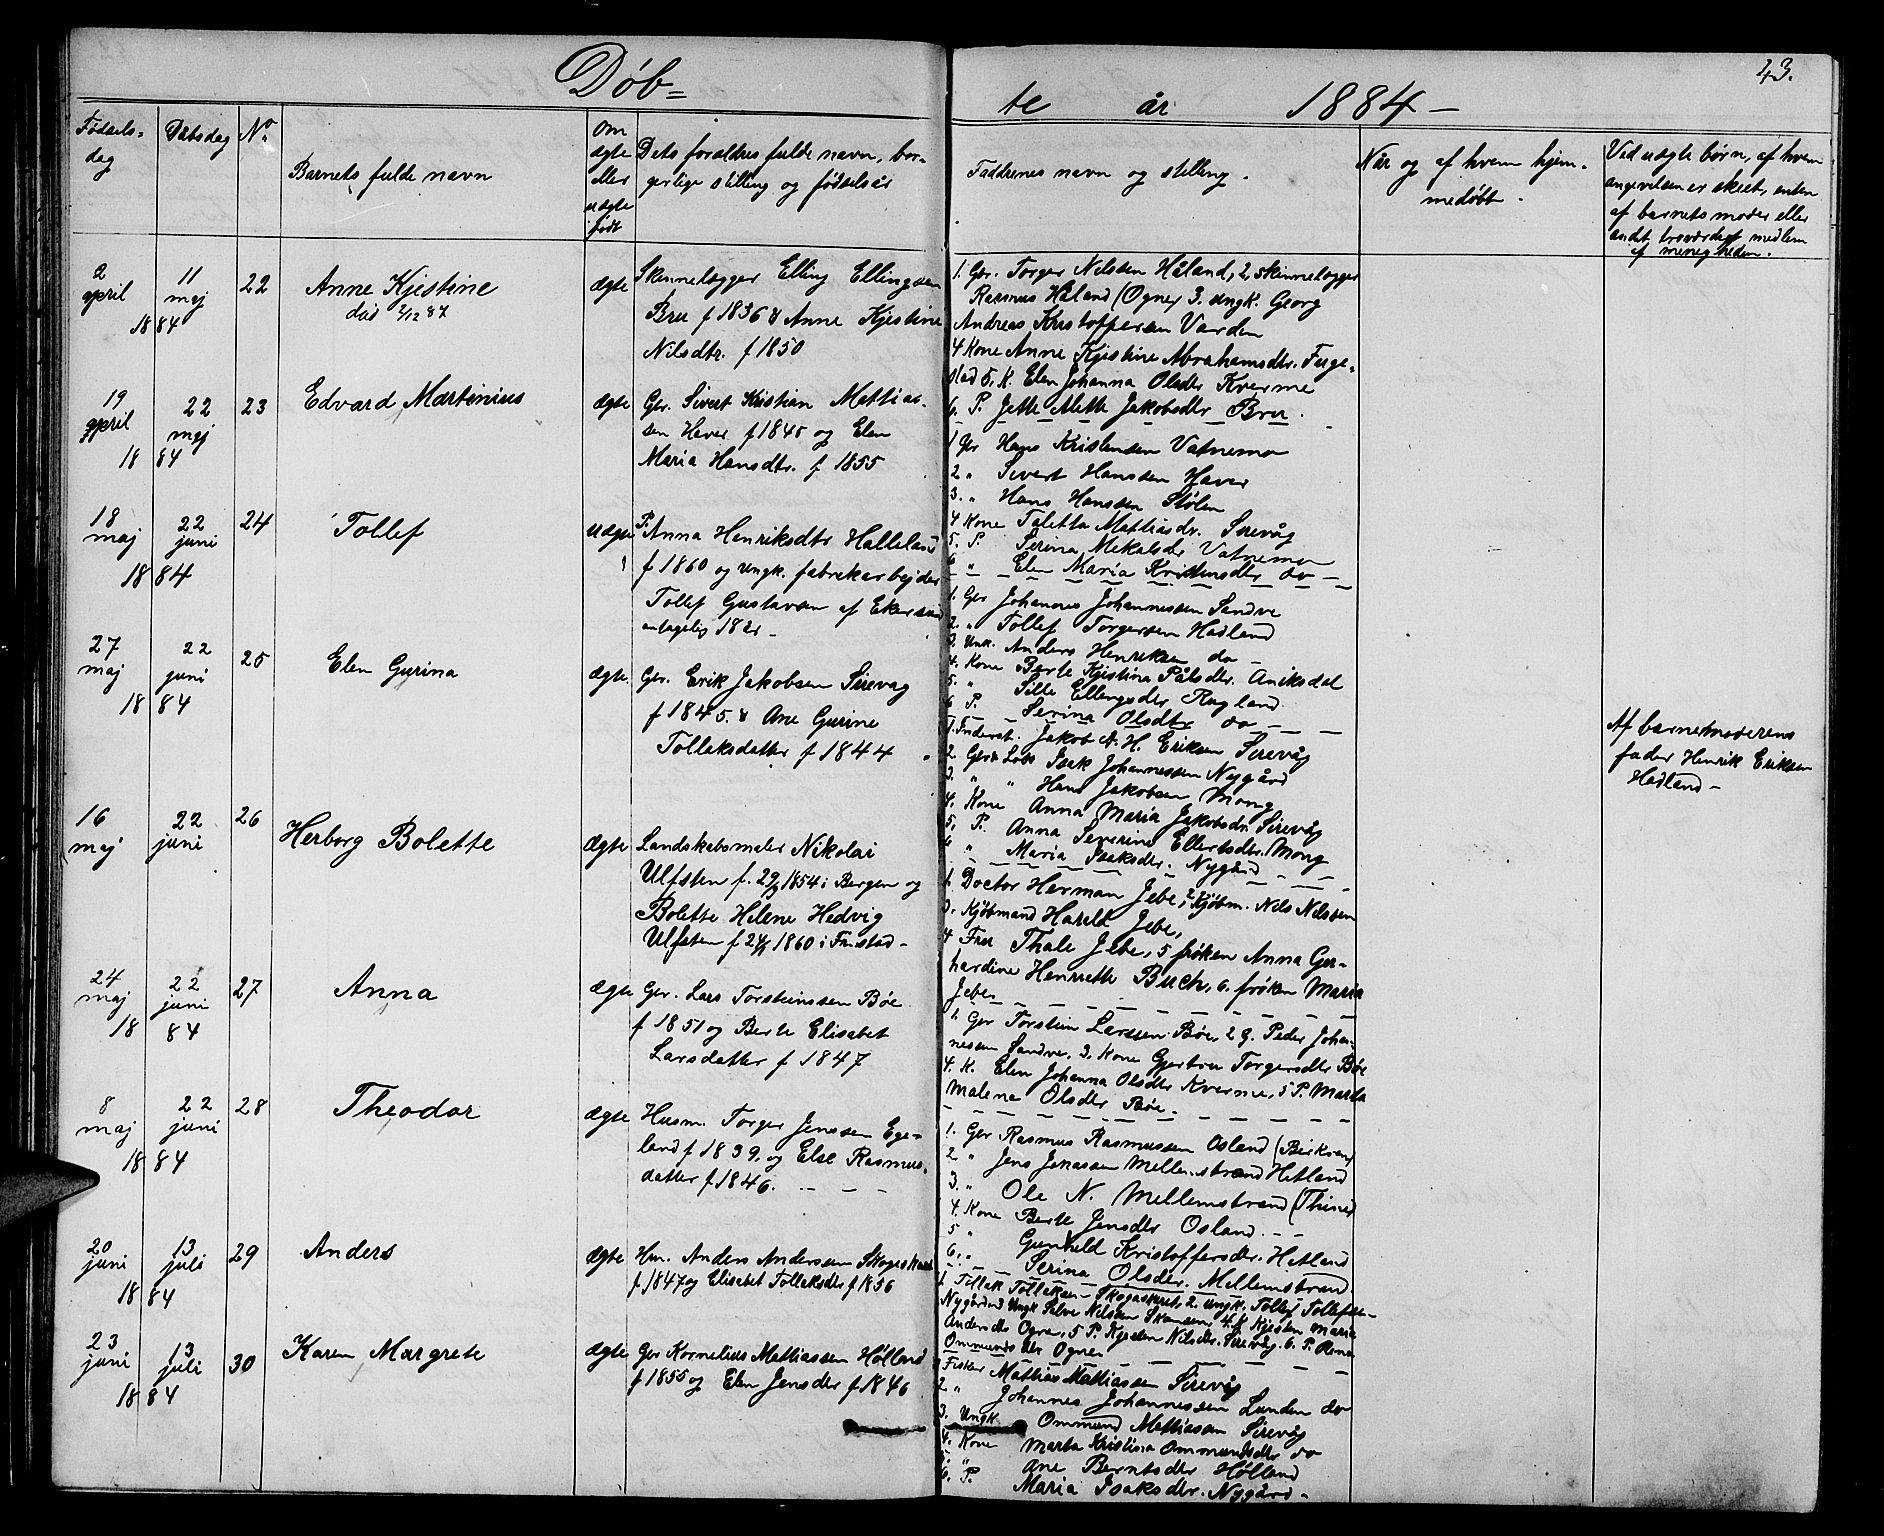 43.
Døb=
te år 1884 –
Fødsels=
dag
Dåbsdag
No
Barnets fulde navn
Om
ægte
eller
uægte
født
Dets forældres fulde navn, bor-
gerlige stilling og fødselsår
Faddernes navn og stilling.
Når og af hvem hjem-
medøbt.
Ved uægte børn, af hvem
angivelsen er skeet, enten
af barnets moder eller
andet troværdigt medlem
af menigheden.
2
april
1884
11
maj
22
Anne Kjestine
død 2/12 87
ægte
Skinnelægger Elling Ellingsen
Bru f 1836 & Anne Kjestine
Nilsdtr. f 1850
1. Gr. Torger Nilssen Håland, 2. skinnelægger
Rasmus Håland (Ogne) 3. ungk. Georg
Andreas Kristoffersen Varden
4 Kone Anne Kjestine Abrahamsdtr. Fuge-
stad 5. K. Elen Johanna Olsdtr Kverme
6. P. Jette Mette Jakobsdtr Bru.
19
april
1884
22
maj
23
Edvard Martinius
ægte
Gr. Sivert Kristian Mattias-
sen Haver f 1845 og Elen
Maria Hansdtr. f 1855
1 Gr Hans Kristensen Vatnemo
2 " Sivert Hanssen Haver
3. " Hans Hanssen Stølen
4 Kone Taletta Mattiasdr. Sirevåg
5. P. Serina Mekalsdr Vatnemo
6 " Elen Maria Kristensdtr do –
18
maj
1884
22
juni
24
Tollef
uægte
P. Anna Henriksdtr Halleland
f 1860 og ungk. fabrikarbejder
Tollef Gustavsen af Ekersund
antagelig 1861 –
1. Gr Johannes Johannessen Sandve
2. " Tollef Torgersen Hadland
3. Unk. Anders Henriksen do –
4. Kone Berte Kjestina Pålsdtr. Aniksdal
5. " Sille Ellingsdtr Rugland
6 P. Serina Olsdtr do –
Af barnemoderens
fader Henrik Eriksen
Hadland –
27
maj
1884
22
juni
25
Elen Gurina
ægte.
Gr. Erik Jakobsen Sirevåg
f 1845. & Ane Gurine
Tollaksdatter f 1844
1. Inderst. Jakob N. H. Eriksen Sirevåg
2. Gr & Lods Isak Johannessen Nygård
3. " " Hans Jakobsen Mong
4. Kone Anna Maria Jakobsdtr Sirevåg
5. P. Anna Severine Ellertsdtr. Mong
6 " Maria Isaksdtr. Nygård
16
maj
22
juni
26
Herborg Bolette
ægte
Landskabsmaler Nikolai
Ulfsten f. 29/9 1854 i Bergen og
Bolette Helene Hedvig
Ulfsten f 24/1 1860 i Frstad –
1. Doctor Herman Jebe, 2. Kjøbm. Nils Nilssen
3. Kjøbmand Harald Jebe,
4 Fru Thale Jebe, 5 frøken Anna Ger-
hardine Henriette Buch, 6. frøken Maria
Jebe.
24
maj
1884
22
juni
27
Anna
ægte
Gr. Lars Torsteinssen Bøe
f 1851 og Berte Elisabet
Larsdatter f 1847
1. Gr Torstein Larssen Bøe, 2 G. Peder Johan-
nessen Sandve, 3. Kone Gjertru Torgersdtr Bøe
4. K. Elen Johanna Olsdtr Kverme, 5 P. Marta
Malena Olsdtr Bøe.
8
maj
1884
22
juni
28
Theodor
ægte
Husm. Torger Jenssen Ege-
land f 1839, og Else Rasmus-
datter f 1846.
1. Gr Rasmus Rasmussen Osland (Birkrem)
2 " Jens Jonassen Mellemstrand Hetland
3. " Ole N. Mellemstrand (Thime)
4. Kone Berte Jensdtr Osland.
5 " Gunhild Kristoffersdtr. Hetland
6. " Serina Olsdtr. Mellemstrand
20
juni
1884
13
juli
29
Anders
ægte
Hm. Anders Anderssen Skogaskaret
f 1847 og Elisabet Tollaksdtr f 1856
1. Tollak Tollaksen Skogaskaret, 2. ungk. Tollef Tollefsen
Nygård 3 Ungk Salve Nilssen Skamsen, 4. K Kjesten Maria
Andersdtr Ogne, 5 P. Kjesten Nilsdtr. Sirevåg 6. P. Rena
Ommundsdtr Ogne
23
juni
1884
13
juli
30
Karen Margrete
ægte
Gr Kornelius Mattiassen Hølland
f 1855 og Elen Jensdtr f 1846
Fisker Mathias Mattiassen Sirevåg
2 " Johannes Johannessen Lunden do
3. Ungk Ommund Mattiassen Sirevåg
4. Kone Marta Kristina Ommundsdtr do
5. " Ane Berntsdtr Hølland
6. P. Maria Isaksdtr. Nygård –